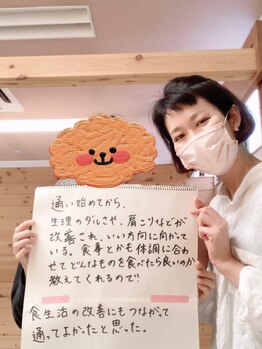 通い始めてから、
生理のダルさや、肩こりなどが
改善され、いい方向に向かって
いる。食事とかも体調に合わ
せてどんなものを食べたら良いのか
教えてくれるので!!
食生活の改善にもつながって
通ってよかったと思った。